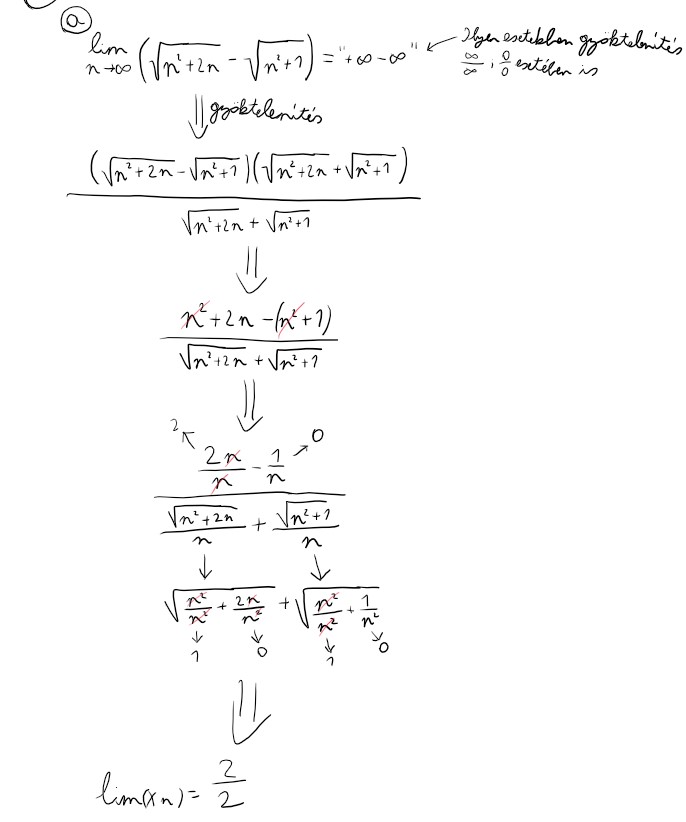 a
lim n→∞ (√(n²+2n) - √(n²+1)) = "+∞ -∞" ← Ilyen esetekben gyöktelenítés
∞/∞, 0/0 esetében is
⇓ gyöktelenítés
(√(n²+2n) - √(n²+1))(√(n²+2n) + √(n²+1))
√(n²+2n) + √(n²+1)
⇓
n²+2n-(n²+1)
√(n²+2n) + √(n²+1)
⇓
2 ↖ ↗ 0
2n/n - 1/n
√(n²+2n)/n + √(n²+1)/n
↓ ↓
√(n²/n² + 2n/n²) + √(n²/n² + 1/n²)
↓ ↓ ↓ ↘
1 0 1 0
⇓
lim(xn) = 2/2